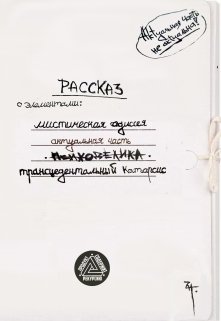 Актуальная часть
не актуальна!
РАССКАЗ
с элементами:
мистическая одиссея
актуальная часть
психоделика
трансцедентальный катарсис